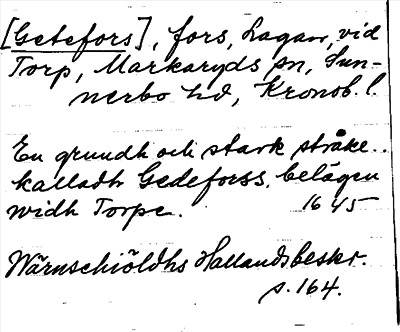 [Getefors], fors, Lagan, vid
Torp, Markaryds sn, Sun-
nerbo hd, Kronob. l.
En grundh och stark stråke..
kalladh Gedeforss, belägen
widh Torpe. 1645
Wärnschiöldhs Hallandsbeskr.
s. 164.